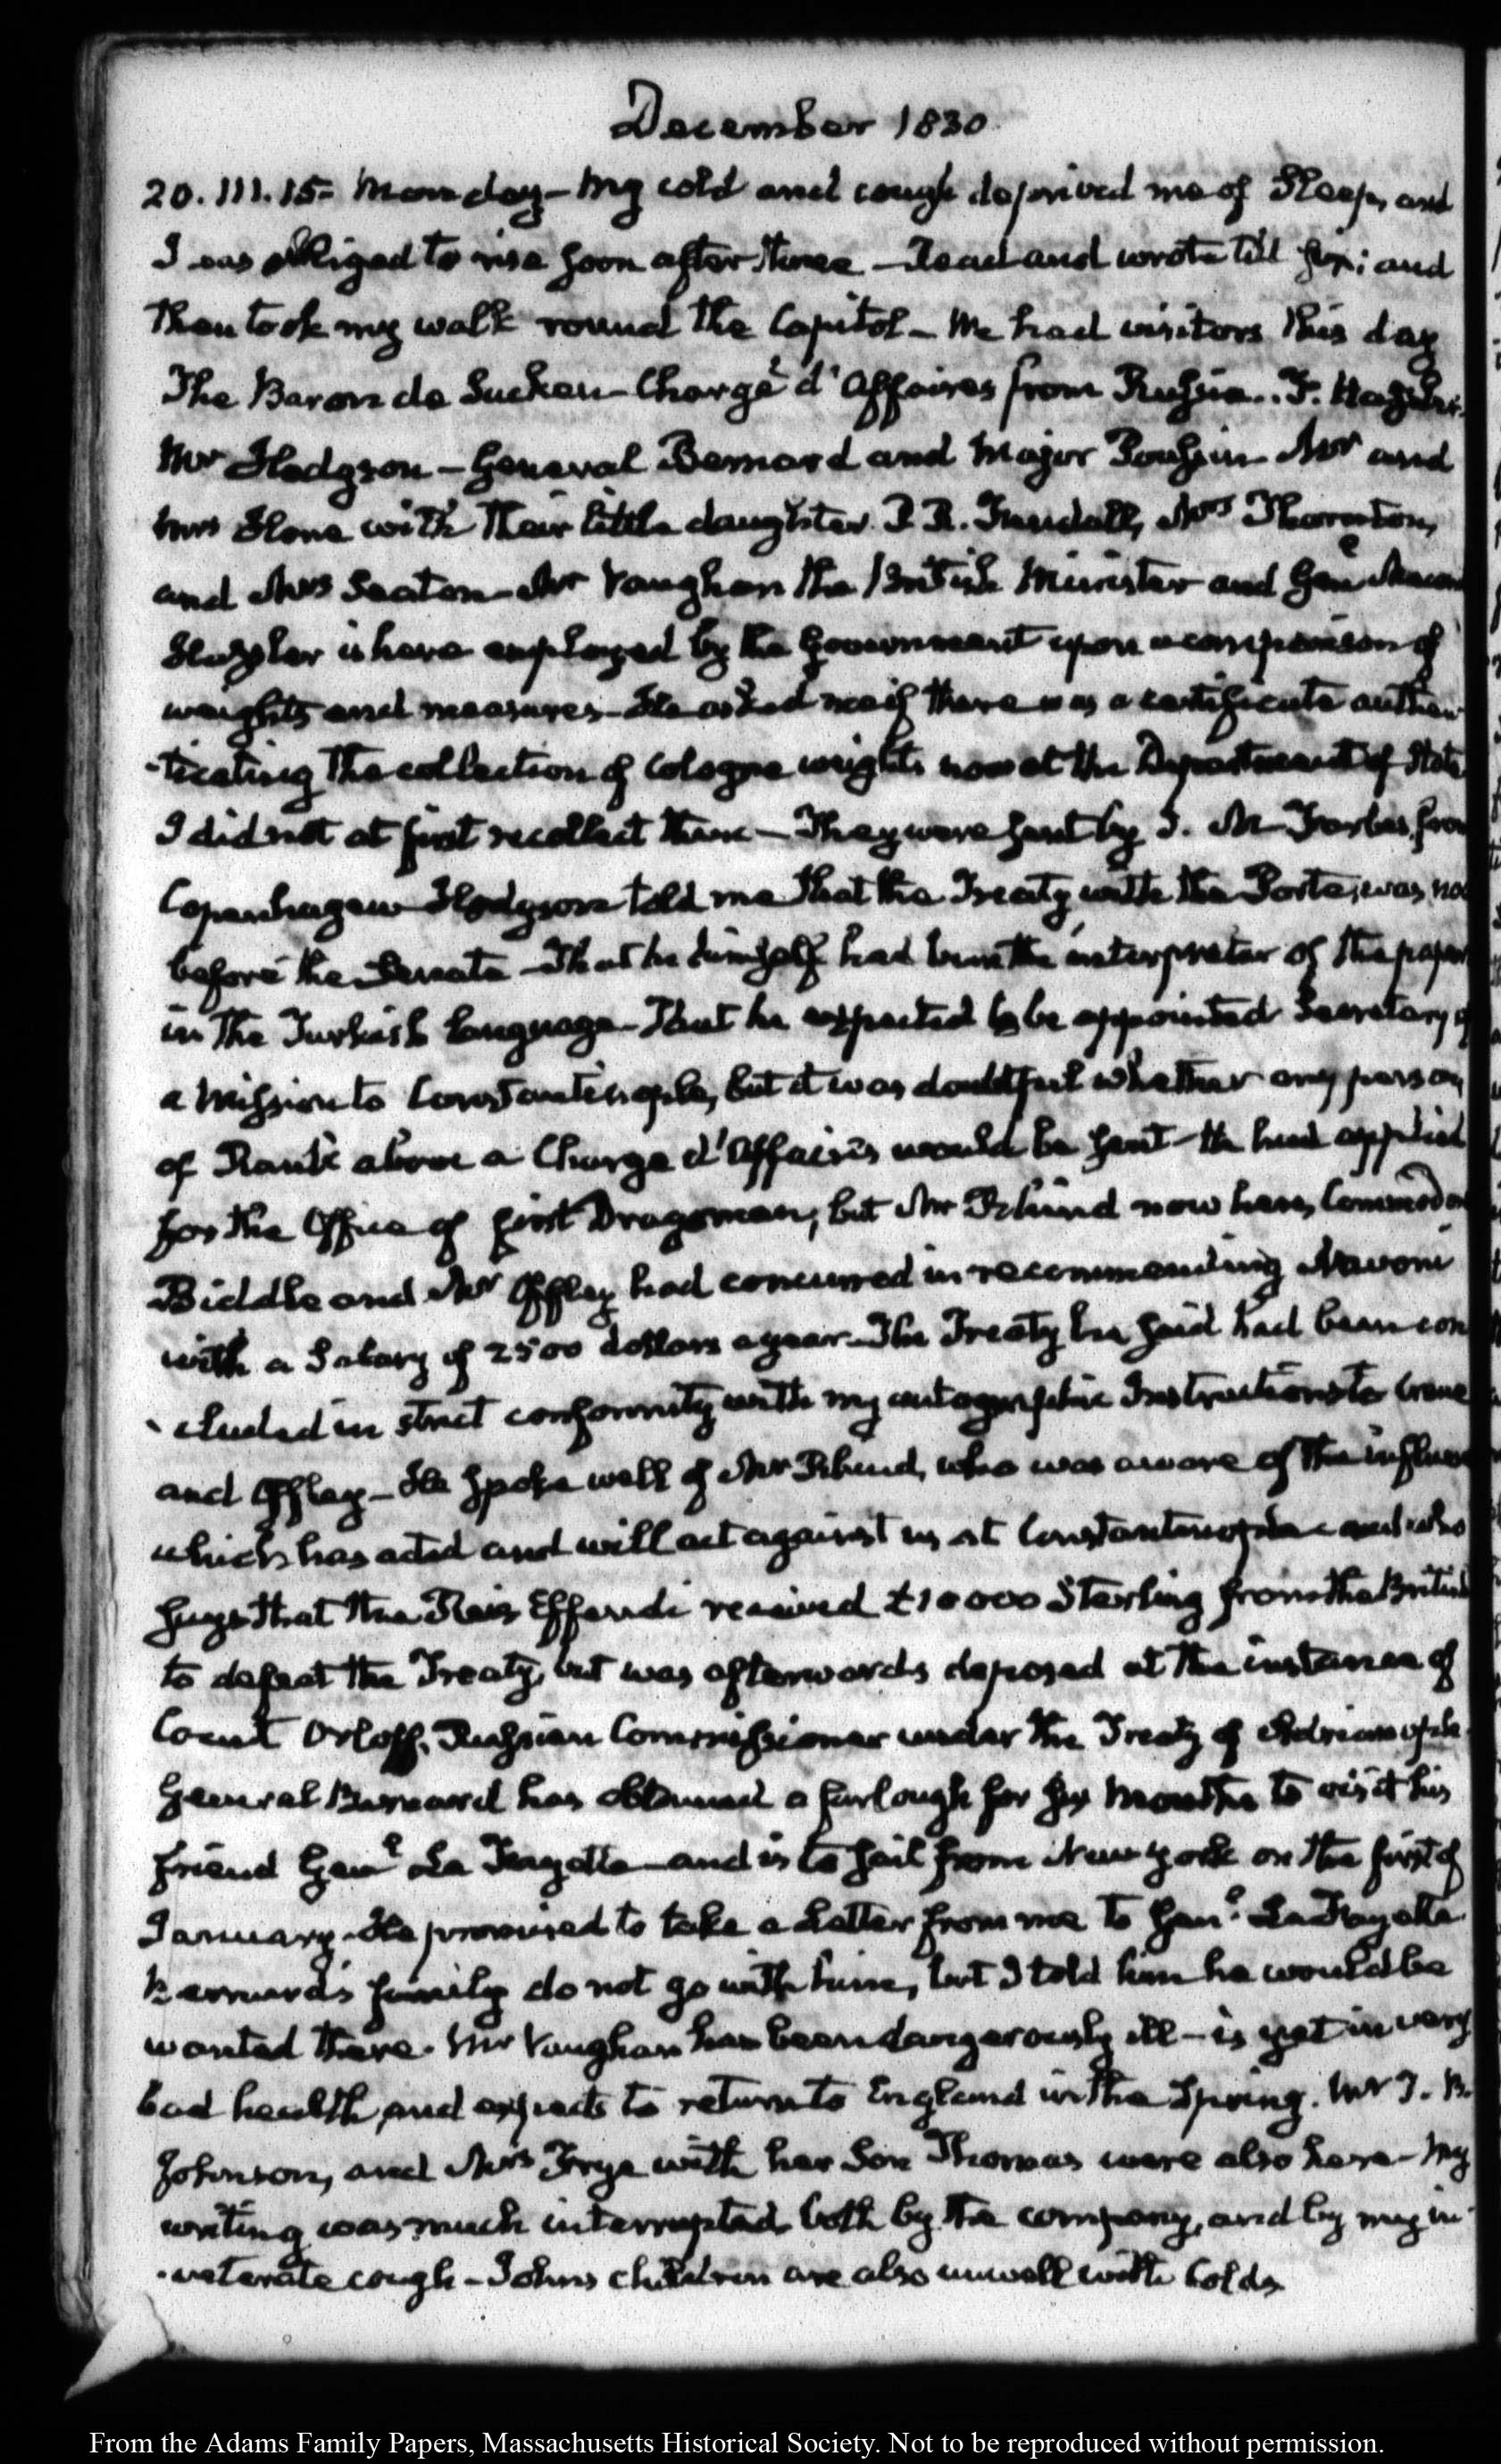 December 1830
20. III. 15. Monday – My cold and cough deprived me of Sleep, and
I was obliged to rise soon after three – Read and wrote till six; and
then took my walk round the Capitol – We had visitors this day
The Baron de Sacken – Chargé d'Affaires from Russia.. F. Hassler.
Mr Hodgson – General Bernard and Major Poussin Mr and
Mrs Stone with their little daughter. Mrs Thornton,
and Mrs Seaton – Mr Vaughan the British Minister and Genl Macomb
Hassler is here employed by the Government upon a comparison of
weights and measures – He asked me if there was a certificate authen
-ticating the collection of Cologne weights now at the Department of State
I did not at first recollect them – They were sent by J. M Forbes from
Copenhagen – Hodgson told me that the Treaty with the Porte, was now
before the Senate – That he himself had been the interpreter of the paper
in the Turkish language – That he expected to be appointed Secretary of
a Mission to Constantinople, but it was doubtful whether any person
of Rank above a Chargé d'Affaires would be sent – He had applied
for the Office of first Dragoman, but Mr Rhind now here, Commodore
Biddle and Mr Offley had concurred in recommending Navoni
with a Salary of 2500 dollars a year – The Treaty he said had been con
-cluded in strict conformity with my autographic Instructions to Crane
and Offley – He spoke well of Mr Rhind, who was aware of the influence
which has acted and will act against us at Constantinople and who
says that the Reis Effendi received £10000 Sterling from the British
to defeat the Treaty, but was afterwards deposed at the instance of
Count Orloff, Russian Commissioner under the Treaty of Adrianople.
General Bernard has obtained a furlough for six Months to visit his
friend Genl La Fayette – and is to sail from New York on the first of
January – He promised to take a Letter from me to Genl La Fayette
Bernard's family do not go with him, but I told him he would be
wanted there. Mr Vaughan has been dangerously ill – is yet in very
bad health, and expects to return to England in the Spring. Mr T. B.
Johnson, and Mrs Frye with her Son Thomas were also here – My
writing was much interrupted both by the company, and by my in
-veterate cough – Johns children are also unwell with Colds
From the Adams Family Papers, Massachusetts Historical Society. Not to be reproduced without permission.